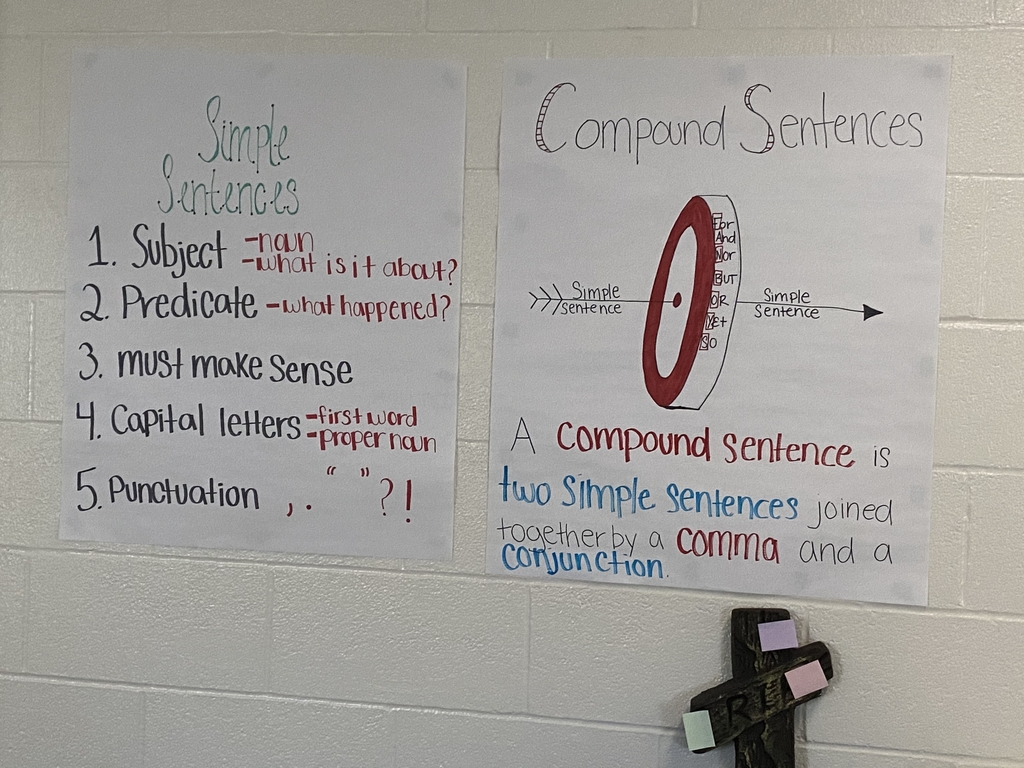 Simple
Sentences
1. Subject -noun
-what is it about?
2. Predicate -what happened?
3. must make sense
4. Capital letters -first word
-proper noun
5. Punctuation , . “ ” ? !
Compound Sentences
For
And
Nor
BUT
OR
Yet
SO
Simple
sentence
Simple
Sentence
A compound sentence is
two simple sentences joined
together by a comma and a
conjunction.